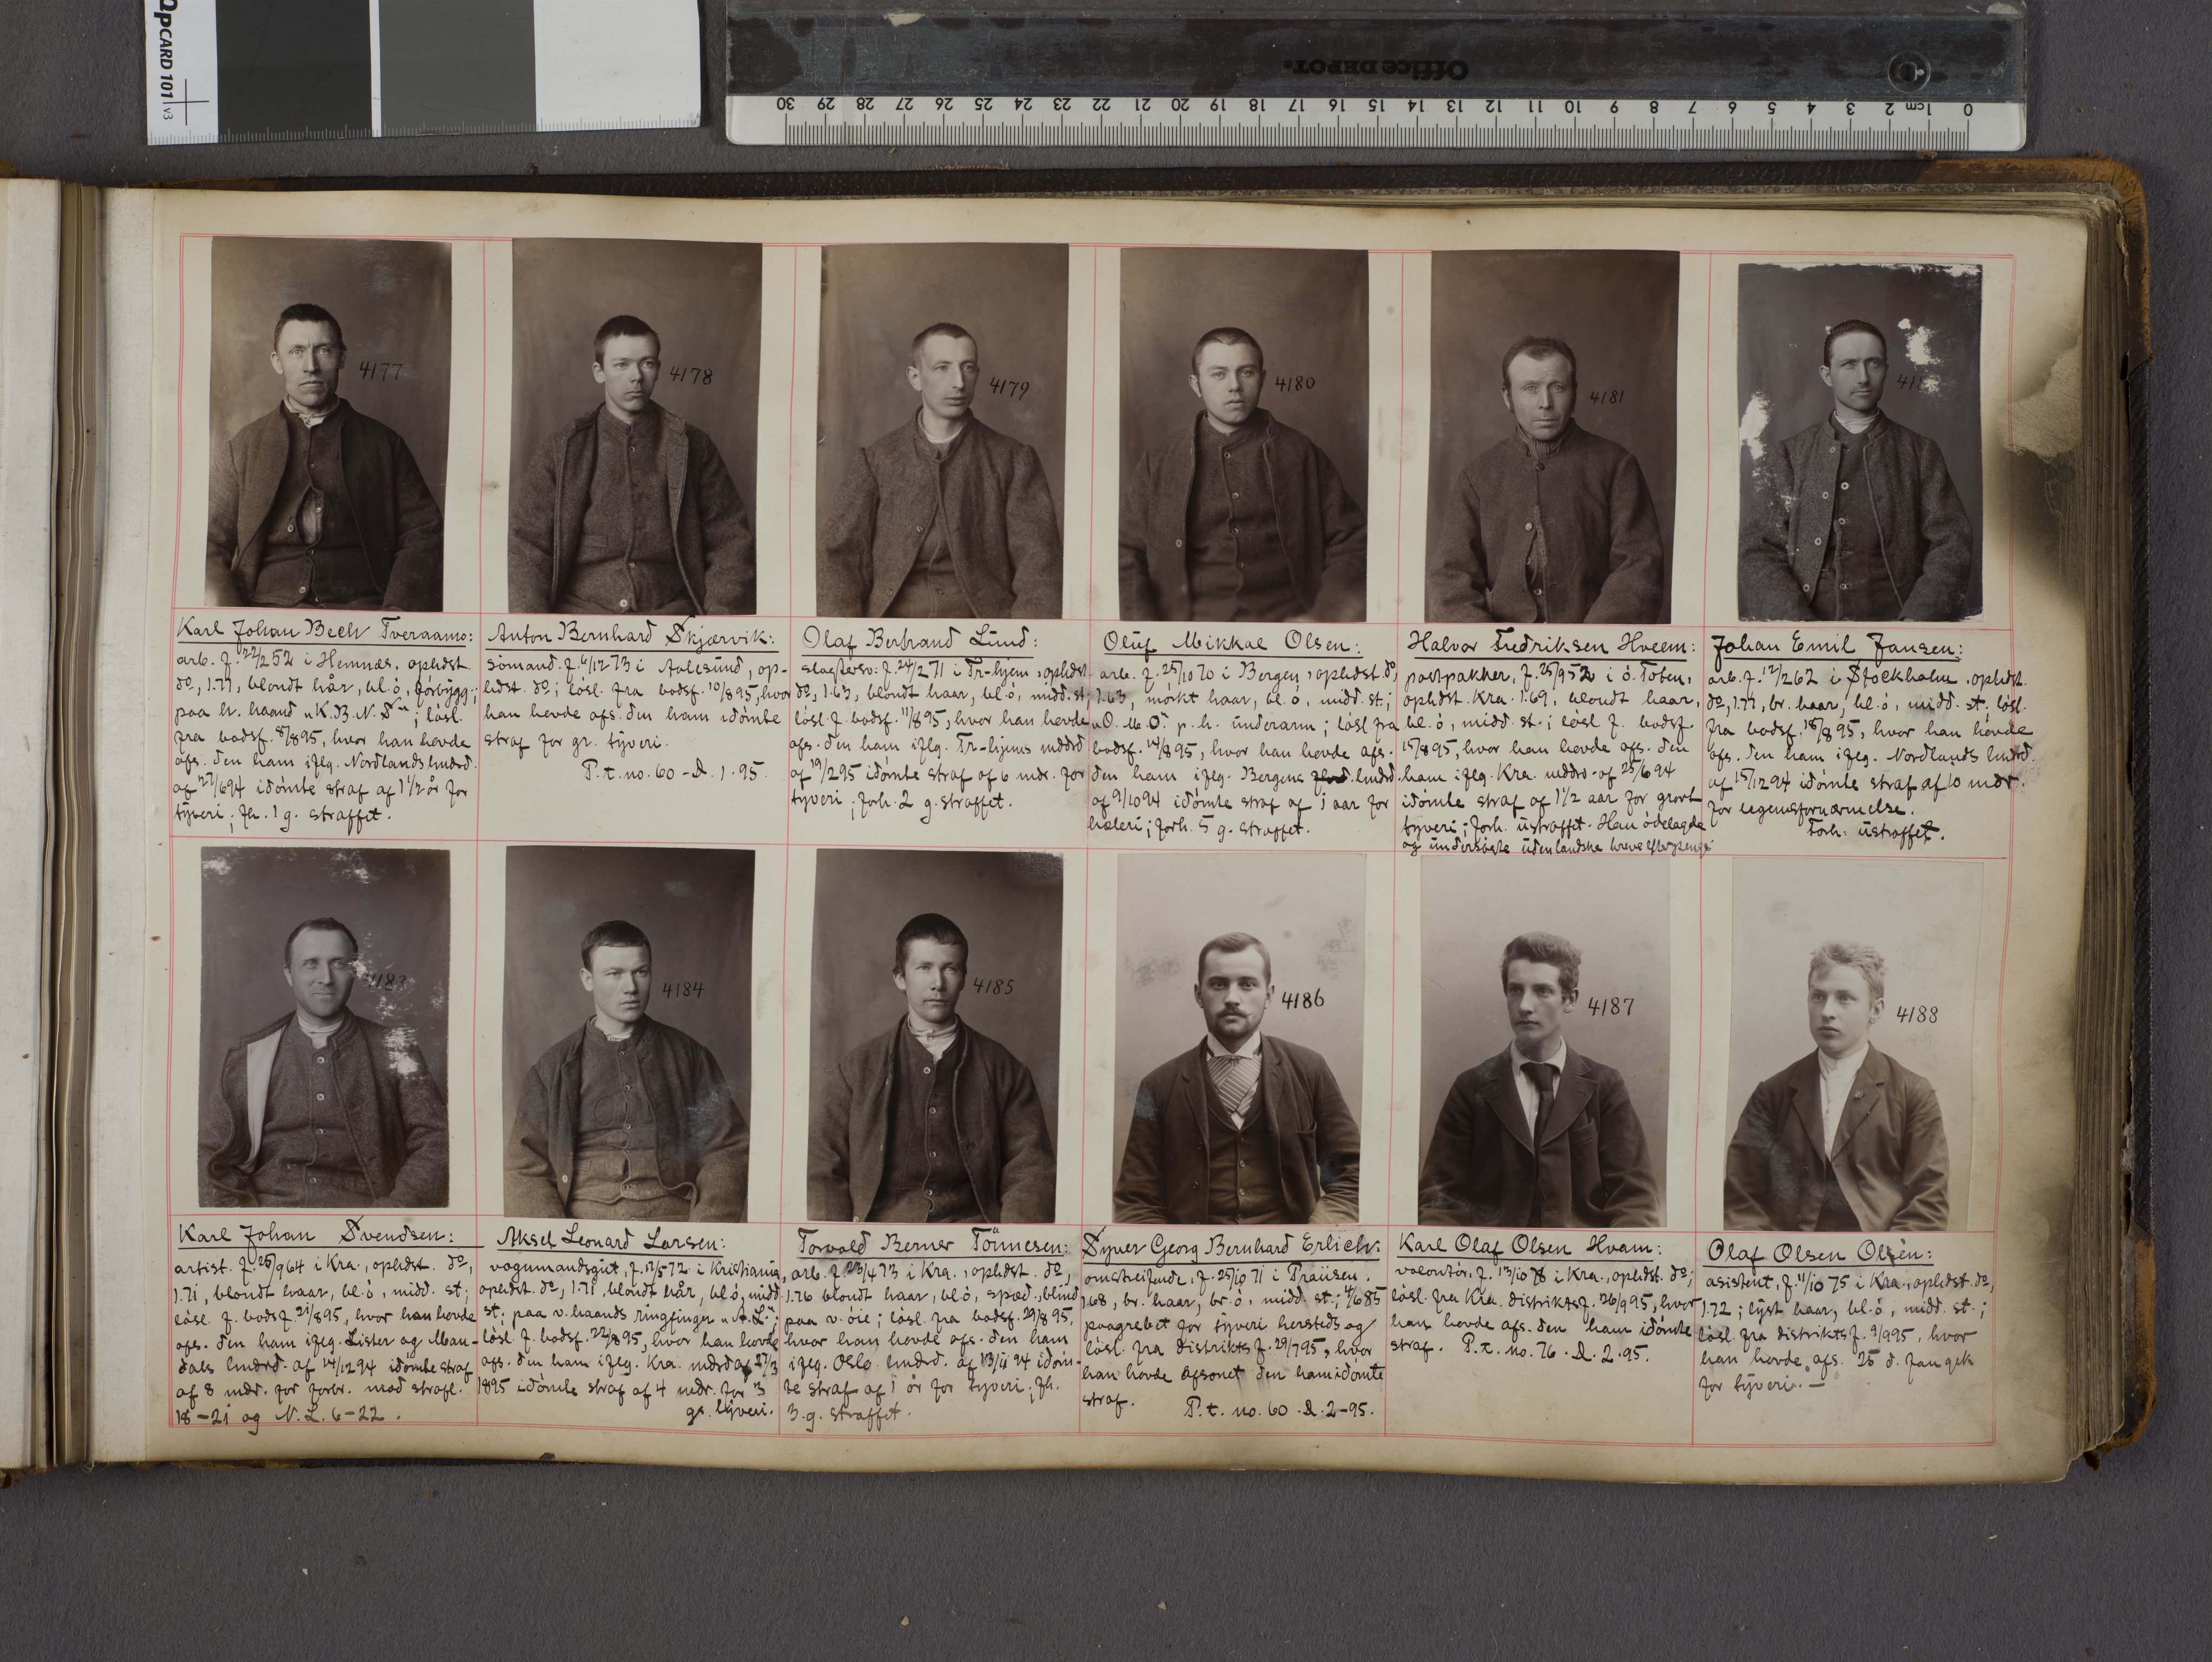 QPCARD 101 v3
Office DEPOT.
0 1 cm 2 3 4 5 6 7 8 9 10 11 12 13 14 15 16 17 18 19 20 21 22 23 24 25 26 27 28 29 30
4177
4178
4179
4180
4181
418
Karl Johan Bech Tveraamo:
arb. f. 22/2 52 i Hemnæs. ophdst.
do, 1.77, blondt hår, bl. ö, förbygg.;
paa h. haand "K.B.N.S"; lösl.
fra bodsf. 8/8 95, hvor han hovde
afs. den ham iflg. Nordlands lmdrd.
af 27/6 94 idömte straf af 1 1/2 år for
tyveri; fh. 1 g. straffet.
Anton Bernhard Skjærvik:
sömand. f. 6/12 73 i Aalesund, op-
hdst. do; lösl. fra bodsf. 10/8 95, hvor
han hovde afs. den ham idömte
straf for gr. tyveri.
P.t. no. 60 - D. 1. 95.
Olaf Bertrand Lund:
slagtersv. f. 24/2 71 i Tr-hjem, ophdst
do, 1.63, blondt haar, bl. ö, midd. st,
lösl. f. bodsf. 11/8 95, hvor han hovde
afs. den ham iflg. Tr-hjems mddrd
af 19/2 95 idömte straf af 6 mdr. for
tyveri; forh. 2 g. straffet.
Oluf Mikkal Olsen:
arb. f. 25/10 70 i Bergen, ophdst. do,
1.63, mörkt haar, bl. ö, midd. st.;
"O. M. O" p. h. underarm; lösl fra
bodsf. 14/8 95, hvor han hovde afs.
den ham iflg. Bergens lmdrd.
af 9/10 94 idömte straf af 1 aar for
hæleri; forh. 5 g. straffet.
Halvor Fredriksen Hveem:
postpakker, f. 25/9 52 i ö. Toten,
ophdst. Kra. 1.69, blondt haar,
bl. ö, midd. st; lösl f. bodsf.
15/8 95, hvor han hovde afs. den
ham iflg. Kra. mddrd. af 25/6 94
idömte straf af 1 1/2 aar for grovt
tyveri; forh. ustraffet. Han ödelagde
og undersögte udenlandske breve efter penge
Johan Emil Jansen:
arb. f. 12/2 62 i Stockholm, ophdst.
do, 1.77, br. haar, bl. ö, midd. st, lösl.
fra bodsf. 18/8 95, hvor han hovde
afs. den ham iflg. Nordlands lmdrd.
af 15/12 94 idömte straf af 10 mdr.
for legemsfornærmelse.
Forh. ustraffet.
4183
4184
4185
4186
4187
4188
Karl Johan Svendsen:
artist. f. 25/9 64 i Kra., ophdst. do,
1.71, blondt haar, bl. ö, midd. st;
lösl. f. bodsf. 21/8 95, hvor han hovde
afs. den ham iflg. Lister og Man-
dals lmdrd. af 14/12 94 idömte straf
af 8 mdr. for forbr. mod strafl.
18-21 og N.L. 6-22.
Aksel Leonard Larsen:
vognmandsgut, f. 17/5 72 i Kristiania,
ophdst. do, 1.71, blondt hår, bl. ö, midd
st; paa v. haands ringfinger "A.L";
lösl. f. bodsf. 22/8 95, hvor han hovde
afs. den ham iflg. Kra. mdrd af 27/3
1895 idömte straf af 4 mdr. for 3
gs. tyveri.
Torvald Berner Tönnesen:
arb. f. 23/4 73 i Kra., ophdst. do,
1.76 blondt haar, bl. ö, spæd, blind
paa v. öie; lösl. fra bodsf. 29/8 95,
hvor han hovde afs. den ham
iflg. Oslo lmdrd. af 13/11 94 idöm-
te straf af 1 år for tyveri; fh.
3. g. straffet.
Syver Georg Bernhard Erlich:
omstreifende, f. 25/10 71 i Prøusen.
1.68, br. haar, br. ö, midd. st.; 4/6 85
paagrebet for tyveri hersteds og
lösl. fra distrikts f. 29/7 95, hvor
han hovde afsonet den ham idömte
straf.
P.t. no. 60. D. 2-95.
Karl Olaf Olsen Hvam:
volontör, f. 13/10 78 i Kra., ophdst. do;
lösl. fra Kra. distriktsf. 26/9 95, hvor
han hovde afs. den ham idömte
straf. P.t. no. 76. D. 2. 95.
Olaf Olsen Olsén:
asistent, f. 11/10 75 i Kra., ophdst. do,
1.72; lyst haar, bl. ö, midd. st.;
lösl. fra distriktsf. 9/9 95, hvor
han hovde afs. 25 d. fængsk
for tyveri. —